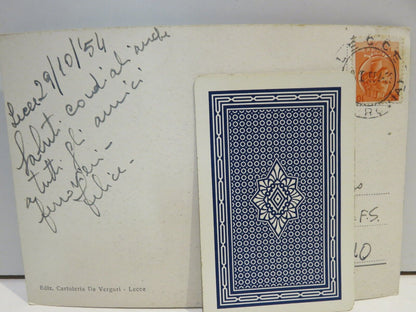 Lecce 29/10/'54
Saluti cordiali anche
a tutti gli amici
ferrovieri -
Felice -
Ediz. Cartoleria De Verguri - Lecce
LECCE
F.S.